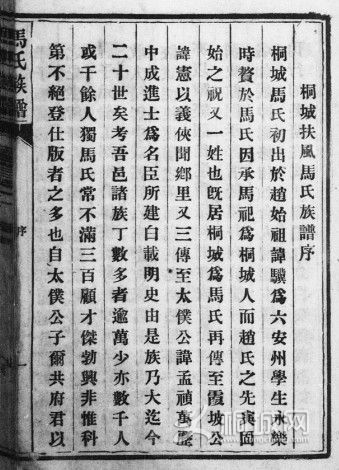 桐城扶風馬氏族譜序
桐城馬氏初出於趙始祖諱驥爲六安州學生永樂
時贅於馬氏因承馬祀爲桐城人而趙氏之先實固
始之祝又一姓也旣居桐城爲馬氏再傳至霞城公
諱憲以義俠聞鄉里又三傳至太僕公諱孟禎萬歷
中成進士爲名臣所建白載明史由是族乃大迄今
二十世矣考吾邑諸族丁數多者逾萬少亦數千人
或千餘人獨馬氏常不滿三百顧才傑勃興非惟科
第不絕登仕版者之多也自太僕公子爾共府君以
馬氏族譜
序
一